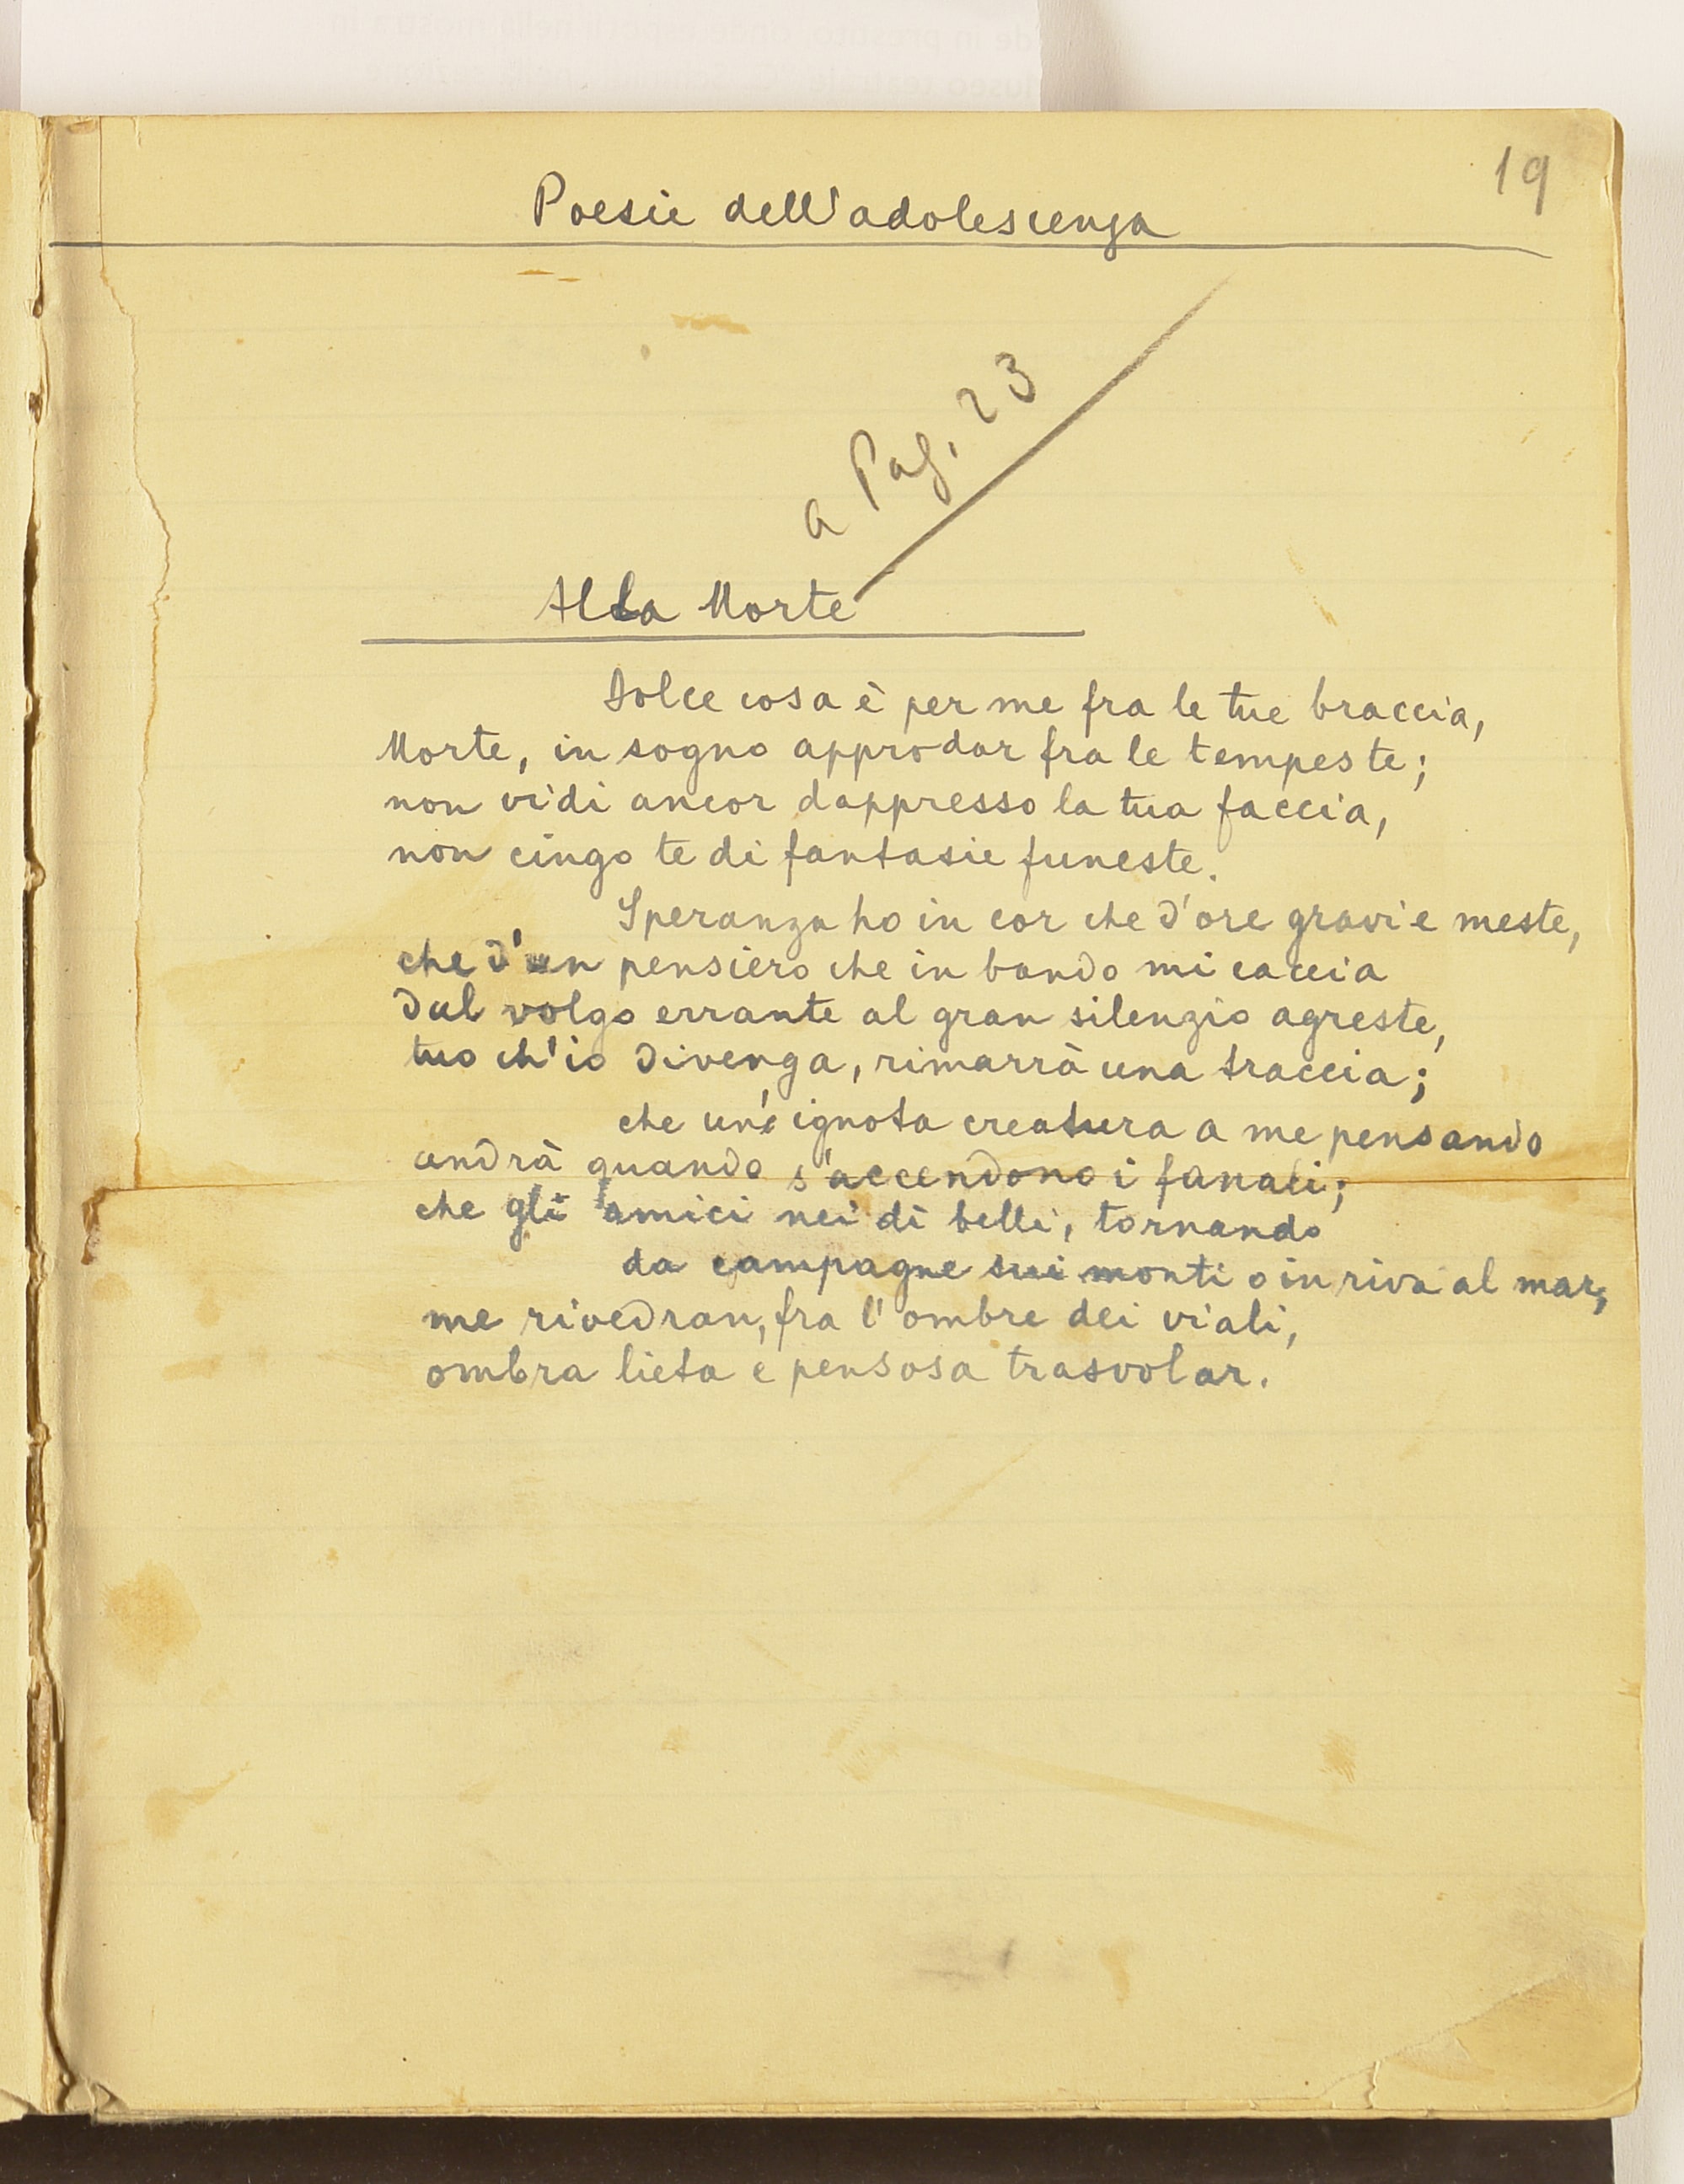 19
Poesie dell'adolescenza
a Pag. 23
Alla Morte
Dolce cosa è per me fra le tue braccia,
Morte, in sogno approdar fra le tempeste;
non vidi ancor dappresso la tua faccia,
non cingo te di fantasie funeste.
Speranza ho in cor che d'ore gravi e meste,
che d'un pensiero che in bando mi caccia
dal volgo errante al gran silenzio agreste,
tuo ch'io divenga, rimarrà una traccia;
che un' ignota creatura a me pensando
andrà quando s'accendono i fanali;
che gli amici nei dì belli, tornando
da campagne sui monti o in riva al mar,
me rivedran, fra l'ombre dei viali,
ombra lieta e pensosa trasvolar.